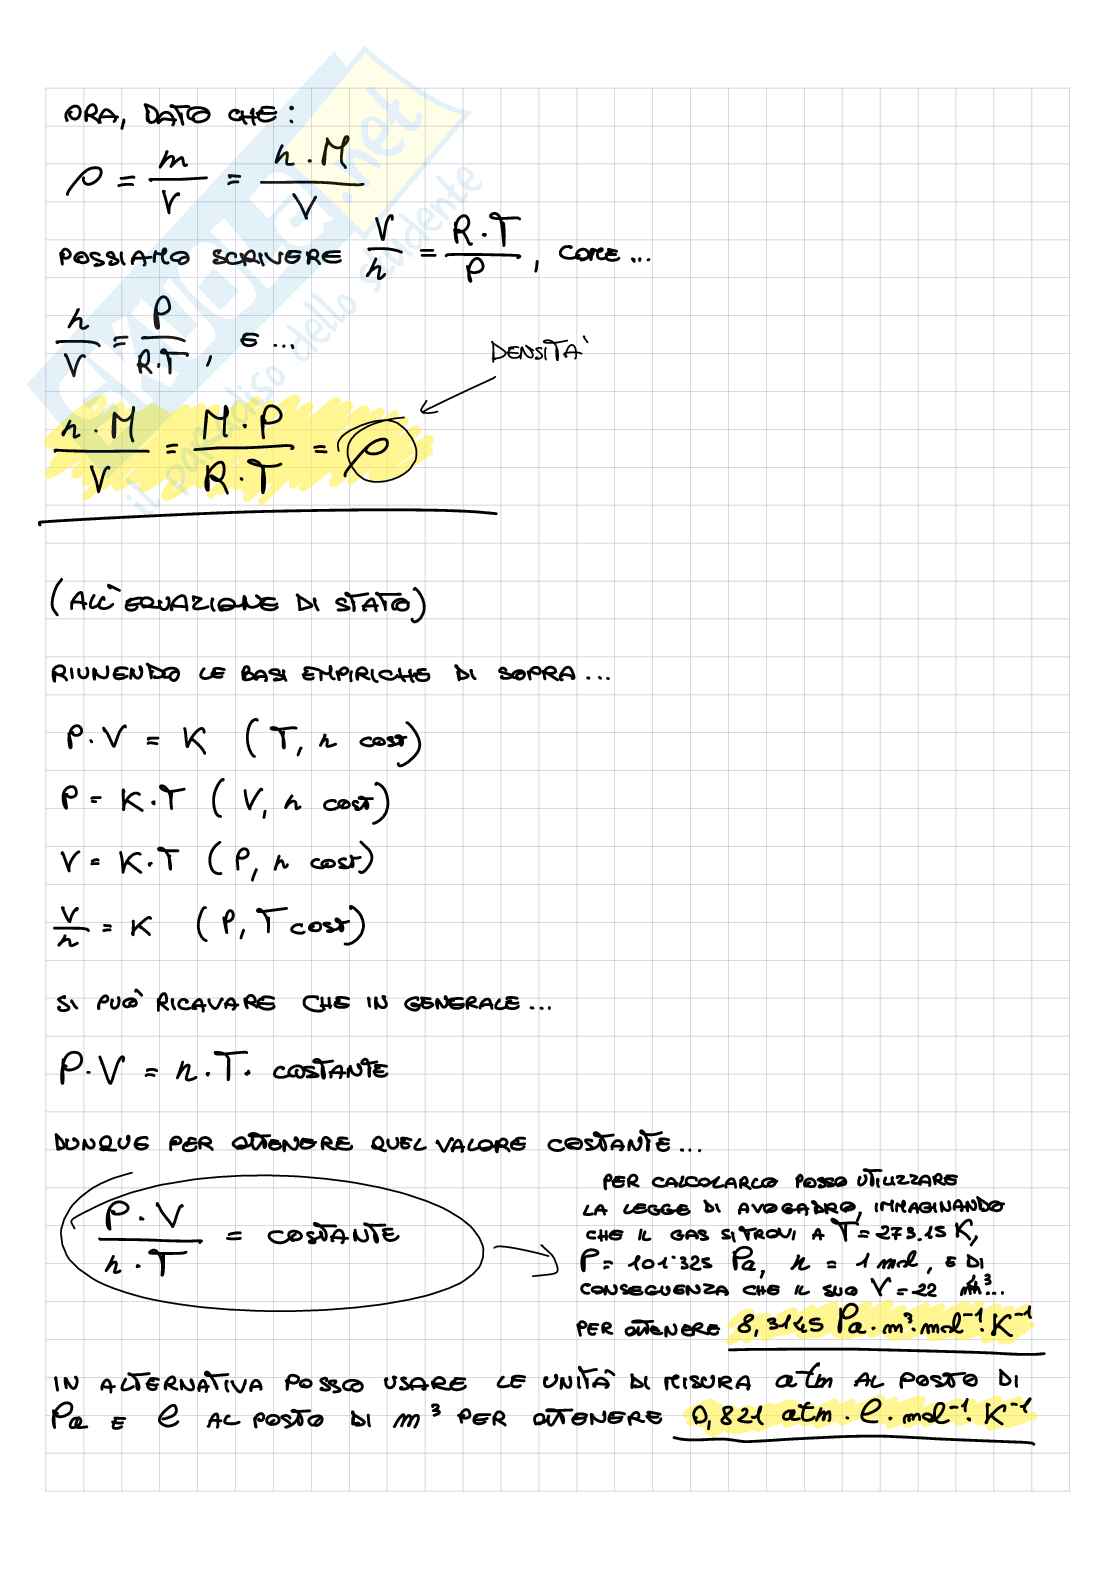 ORA, DATO CHE:
ρ = m/V = n · M/V
POSSIAMO SCRIVERE V/n = R·T/P, COME...
n/V = P/R·T, E ...
DENSITÀ
n·M/V = M·P/R·T = ρ
(ALL'EQUAZIONE DI STATO)
RIUNENDO LE BASI EMPIRICHE DI SOPRA...
P·V = K (T, n cost)
P = K·T (V, n cost)
V = K·T (P, n cost)
V/n = K (P, T cost)
SI PUÒ RICAVARE CHE IN GENERALE...
P·V = n·T· COSTANTE
DUNQUE PER OTTENERE QUEL VALORE COSTANTE...
P·V/n·T = COSTANTE
PER CALCOLARLO POSSO UTILIZZARE
LA LEGGE DI AVOGADRO, IMMAGINANDO
CHE IL GAS SI TROVI A T=273.15 K,
P= 101·325 Pa, n = 1 mol, E DI
CONSEGUENZA CHE IL SUO V=22 m³...
PER OTTENERE 8,3145 Pa·m³·mol⁻¹·K⁻¹
IN ALTERNATIVA POSSO USARE LE UNITÀ DI MISURA atm AL POSTO DI
Pa E l AL POSTO DI m³ PER OTTENERE 0,821 atm·l·mol⁻¹·K⁻¹
SKUOLA.net
il paradiso dello studente